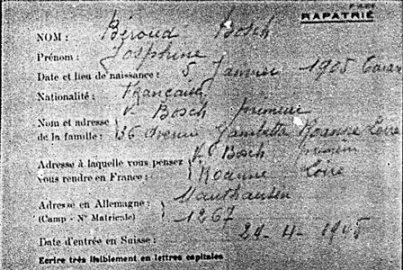 RAPATRIÉ
NOM : Béroud Bosch
Prénom : Josephine
Date et lieu de naissance : 5 Janvier 1905
Nationalité : Française
Nom et adresse de la famille : V. Bosch primeur
36 Avenue Gambetta Roanne Loire
Adresse à laquelle vous pensez vous rendre en France : V. Bosch
Roanne Loire
Adresse en Allemagne : Mauthausen
(Camp - N° Matricule) 1267
Date d'entrée en Suisse : 24-4-1945
Ecrire très lisiblement en lettres capitales